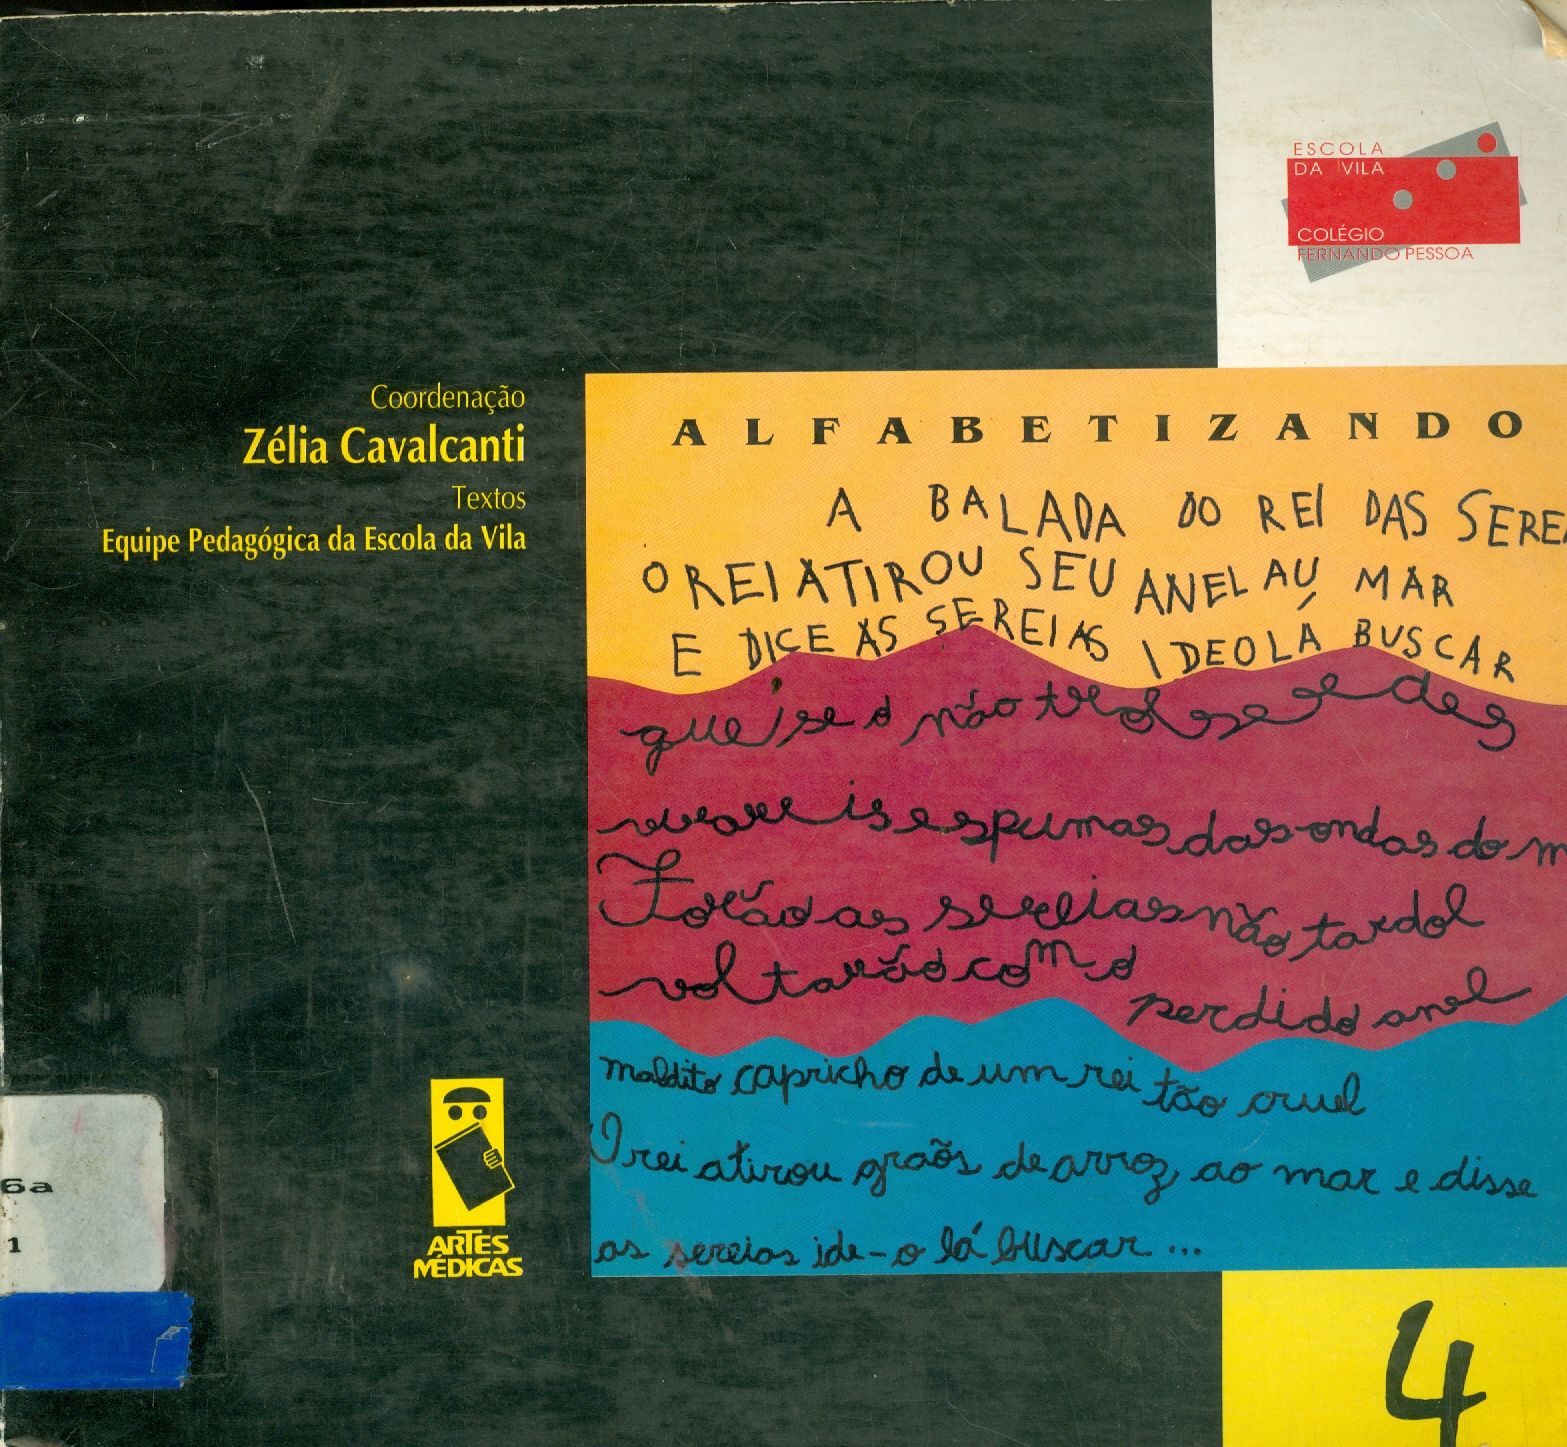 ESCOLA
DA VILA
COLÉGIO
FERNANDO PESSOA
Coordenação
Zélia Cavalcanti
Textos
Equipe Pedagógica da Escola da Vila
ALFABETIZANDO
A BALADA DO REI DAS SEREI
O REI ATIROU SEU ANEL AU MAR
E DICE AS SEREIAS IDEOLÁ BUSCAR
que se o não
espumas das ondas do m
Forão as sereias não tardol
voltarão com o perdido anel
maldito capricho de um rei tão cruel
O rei atirou graõs de arroz, ao mar e disse
as sereias ide-o lá buscar...
ARTES
MÉDICAS
6a
1
4